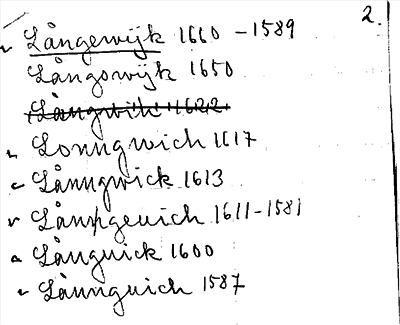 2.
Långewijk 1660 - 1589
Långowijk 1650
Långwik 1622
Lonngwich 1617
Långwick 1613
Långeuich 1611-1581
Långuick 1600
Lånnguich 1587